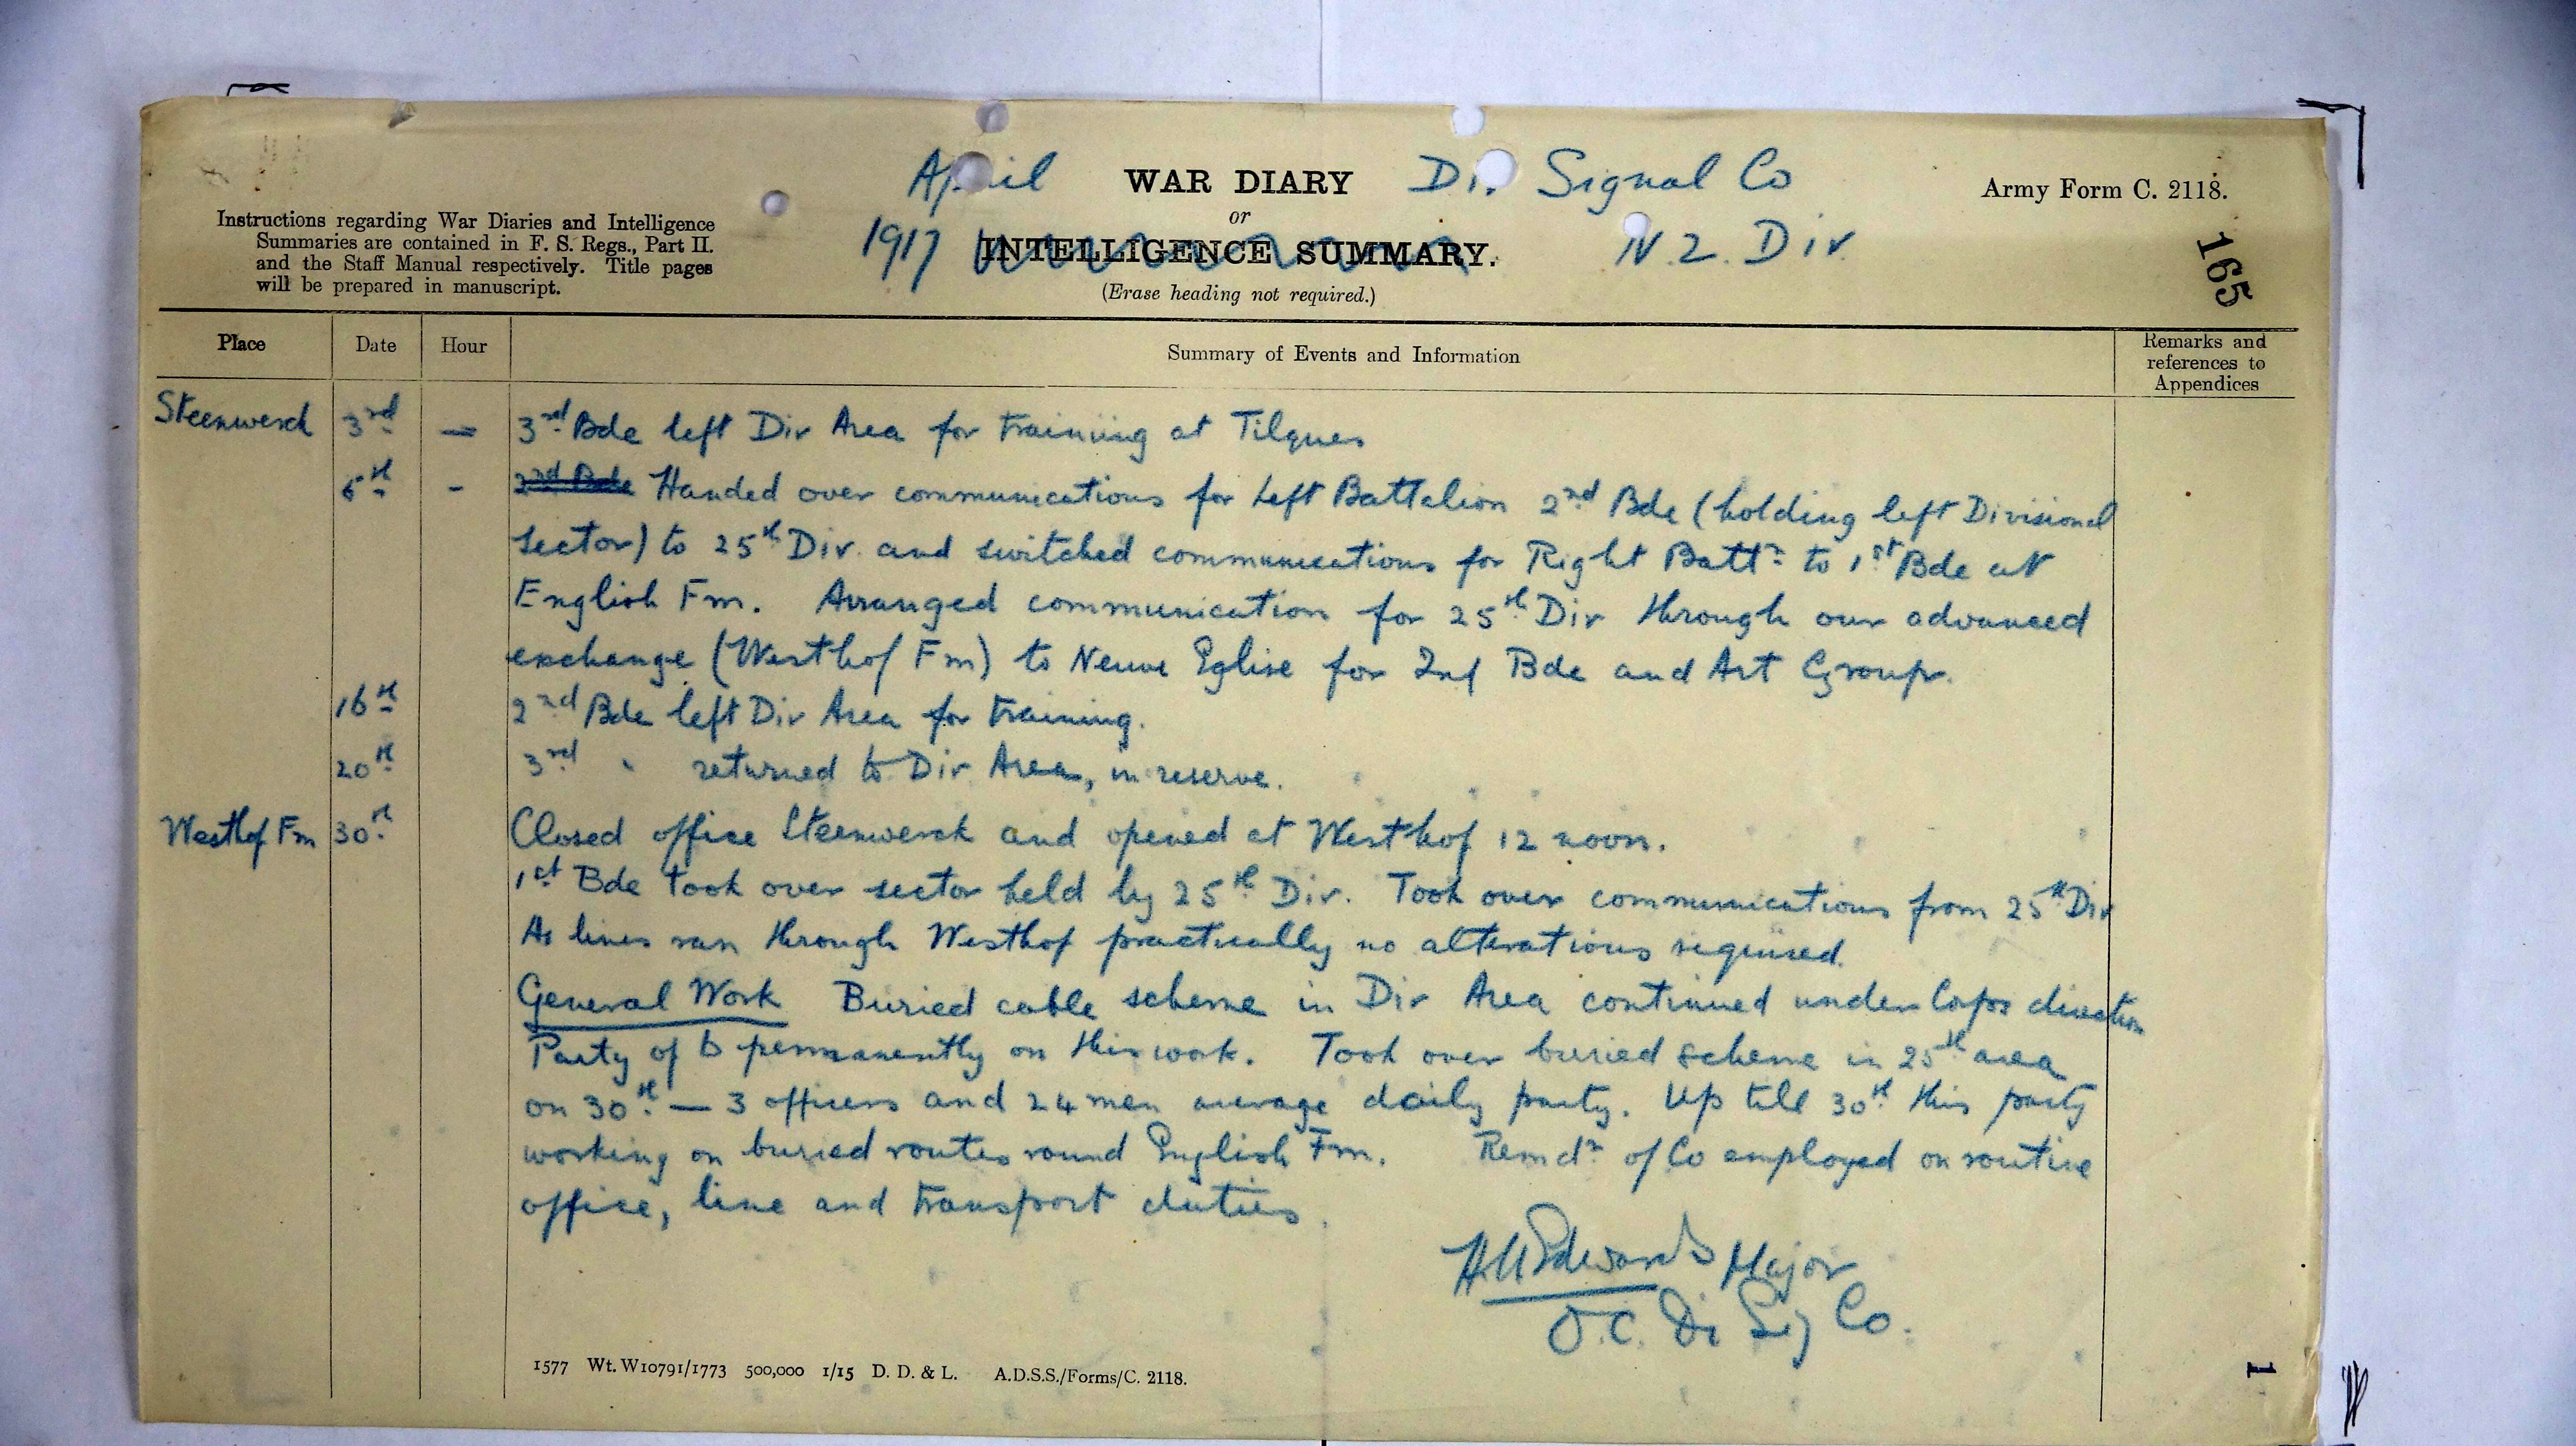 April WAR DIARY Di. Signal Co Army Form C. 2118.
or
1917 INTELLIGENCE SUMMARY. N.Z. Div.
(Erase heading not required.)
Instructions regarding War Diaries and Intelligence
Summaries are contained in F. S. Regs., Part II.
and the Staff Manual respectively. Title pages
will be prepared in manuscript.
165
Place Date Hour Summary of Events and Information Remarks and references to Appendices
Steenwerck 3rd — 3rd Bde left Div Area for training at Tilques
6th - 2nd Bde Handed over communications for Left Battalion 2nd Bde (holding left Divisional
sector) to 25th Div. and switched communications for Right Battn to 1st Bde at
English Fm. Arranged communication for 25th Div through our advanced
exchange (Westhof Fm) to Neuve Eglise for Inf Bde and Art Group.
16th 2nd Bde left Div Area for training.
20th 3rd " returned to Div Area, in reserve.
Westhof Fm 30th Closed office Steenwerck and opened at Westhof 12 noon.
1st Bde took over sector held by 25th Div. Took over communications from 25th Div
As lines ran through Westhof practically no alterations required.
General Work Buried cable scheme in Div Area continued under Corps direction
Party of 6 permanently on this work. Took over buried scheme in 25th area
on 30th — 3 officers and 24 men average daily party. Up till 30th this party
working on buried routes round English Fm. Remdr of Co employed on routine
office, line and transport duties.
Edwards Major
O.C. Di Sig Co.
1577 Wt. W10791/1773 500,000 1/15 D. D. & L. A.D.S.S./Forms/C. 2118.
1